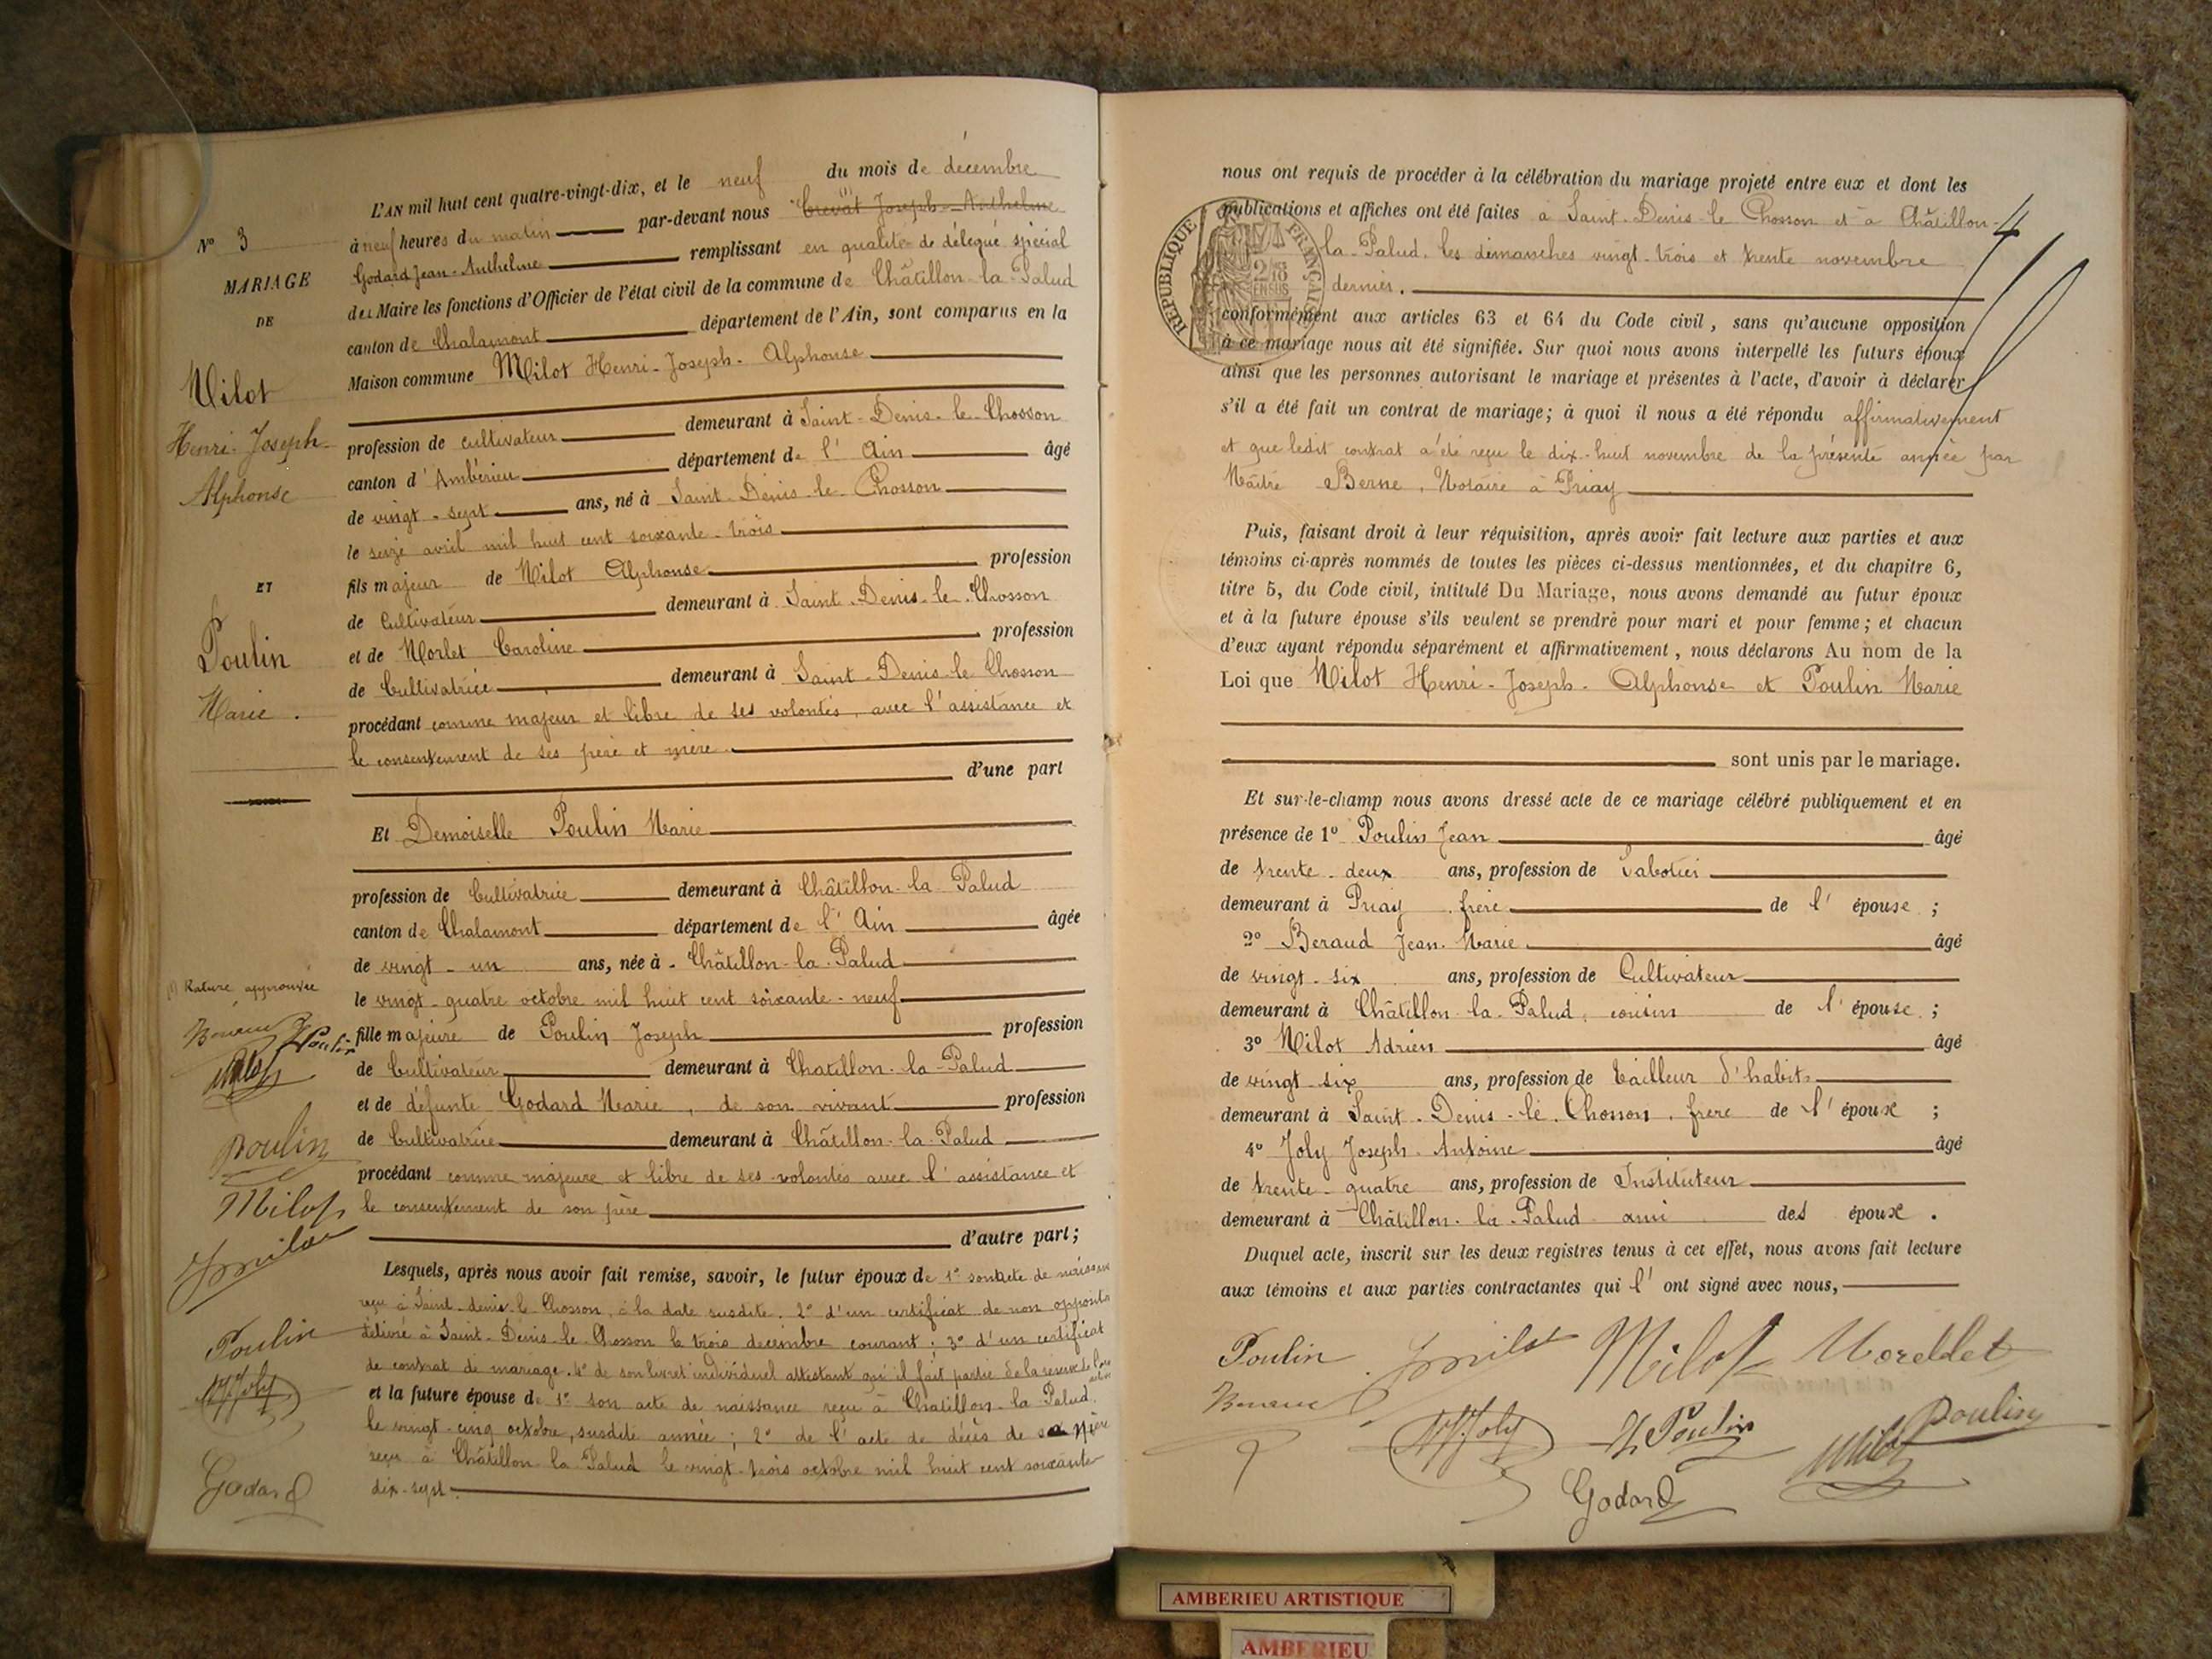 N° 3
MARIAGE
DE
Milot
Henri-Joseph-
Alphonse
ET
Poulin
Marie.
(1) Rature approuvée
H Poulin
Milot
Poulin
Milot
J milot
Poulin
JJ Joly
Godard
L'AN mil huit cent quatre-vingt-dix, et le neuf du mois de décembre
à neuf heures du matin par-devant nous (1) Crevat Joseph-Anthelme
Godard Jean-Anthelme remplissant en qualité de délégué spécial
du Maire les fonctions d'Officier de l'état civil de la commune de Châtillon-la-Palud
canton de Chalamont département de l'Ain, sont comparus en la
Maison commune Milot Henri-Joseph-Alphonse
profession de cultivateur demeurant à Saint-Denis-le-Chosson
canton d'Ambérieu département de l'Ain âgé
de vingt-sept ans, né à Saint-Denis-le-Chosson
le seize avril mil huit cent soixante-trois
fils majeur de Milot Alphonse profession
de Cultivateur demeurant à Saint-Denis-le-Chosson
et de Morlet Caroline profession
de Cultivatrice demeurant à Saint-Denis-le Chosson
procédant comme majeur et libre de ses volontés, avec l'assistance et
le consentement de ses père et mère.
d'une part
Et Demoiselle Poulin Marie
profession de Cultivatrice demeurant à Châtillon-la-Palud
canton de Chalamont département de l'Ain âgée
de vingt-un ans, née à Châtillon-la-Palud
le vingt-quatre octobre mil huit cent soixante-neuf
fille majeure de Poulin Joseph profession
de Cultivateur demeurant à Chatillon-la-Palud
et de défunte Godard Marie, de son vivant profession
de Cultivatrice demeurant à Châtillon-la-Palud
procédant comme majeure et libre de ses volontés avec l'assistance et
le consentement de son père
d'autre part;
Lesquels, après nous avoir fait remise, savoir, le futur époux de 1° son acte de naissance
reçu à Saint-denis-le Chosson, à la date susdite. 2° d'un certificat de non opposition
délivré à Saint-Denis-le-Chosson le trois décembre courant; 3° d'un certificat
de contrat de mariage. 4° de son livret individuel attestant qu'il fait partie de la réserve de l'armée
et la future épouse de 1° son acte de naissance reçu à Chatillon-la-Palud,
le vingt-cinq octobre, susdite année; 2° de l'acte de décès de sa mère
reçu à Châtillon la Palud le vingt-trois octobre mil huit cent soixante
dix-sept.
nous ont requis de procéder à la célébration du mariage projeté entre eux et dont les
publications et affiches ont été faites à Saint-Denis-le Chosson et à Châtillon-
la-Palud, les dimanches vingt-trois et trente novembre
dernier.
conformément aux articles 63 et 64 du Code civil, sans qu'aucune opposition
à ce mariage nous ait été signifiée. Sur quoi nous avons interpellé les futurs époux
ainsi que les personnes autorisant le mariage et présentes à l'acte, d'avoir à déclarer
s'il a été fait un contrat de mariage; à quoi il nous a été répondu affirmativement
et que ledit contrat a été reçu le dix-huit novembre de la présente année par
Maître Berne, Notaire à Priay
Puis, faisant droit à leur réquisition, après avoir fait lecture aux parties et aux
témoins ci-après nommés de toutes les pièces ci-dessus mentionnées, et du chapitre 6,
titre 5, du Code civil, intitulé Du Mariage, nous avons demandé au futur époux
et à la future épouse s'ils veulent se prendre pour mari et pour femme; et chacun
d'eux ayant répondu séparément et affirmativement, nous déclarons Au nom de la
Loi que Milot Henri-Joseph-Alphonse et Poulin Marie
sont unis par le mariage.
Et sur-le-champ nous avons dressé acte de ce mariage célébré publiquement et en
présence de 1° Poulin Jean âgé
de trente-deux ans, profession de Sabotier
demeurant à Priay, frère de l'épouse;
2° Beraud Jean-Marie âgé
de vingt-six ans, profession de Cultivateur
demeurant à Châtillon-la-Palud, cousin de l'épouse;
3° Milot Adrien âgé
de vingt-six ans, profession de tailleur d'habits
demeurant à Saint-Denis-le-Chosson, frère de l'époux;
4° Joly Joseph-Antoine âgé
de trente-quatre ans, profession de Instituteur
demeurant à Châtillon-la-Palud ami des époux.
Duquel acte, inscrit sur les deux registres tenus à cet effet, nous avons fait lecture
aux témoins et aux parties contractantes qui l'ont signé avec nous,
Poulin J milot Milot Morellet
JJ Joly H Poulin Milot Poulin
Godard
REPUBLIQUE FRANÇAISE
AMBERIEU ARTISTIQUE
AMBERIEU